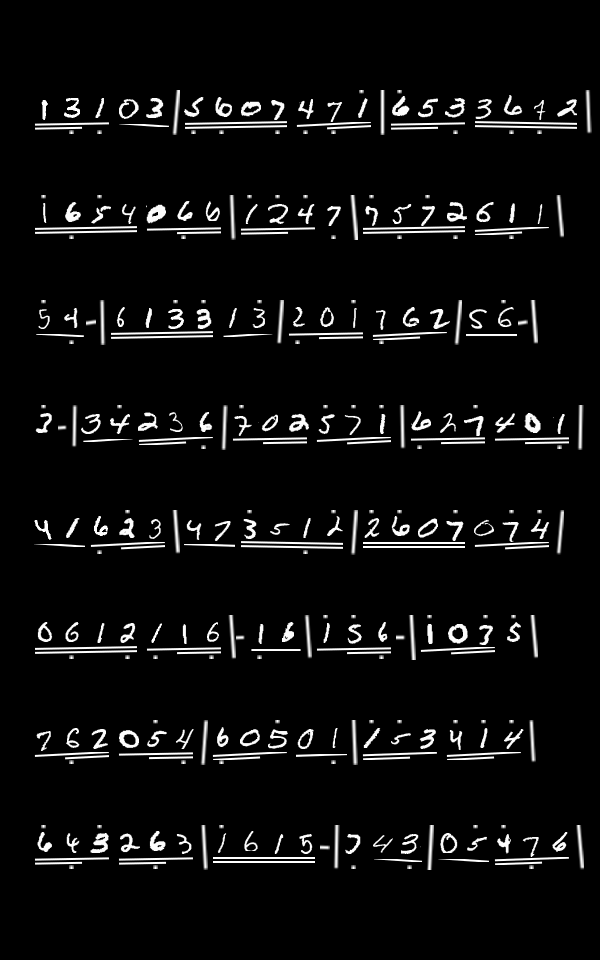 1 3 1 0 3 | 5 6 0 7 4 7 1 | 6 5 3 3 6 7 2 |
1 6 5 4 0 6 6 | 1 2 4 7 | 7 5 7 2 6 1 1 |
5 4 - | 6 1 3 3 1 3 | 2 0 1 7 6 2 | 5 6 - |
3 - | 3 4 2 3 6 | 7 0 2 5 7 1 | 6 2 7 4 0 1 |
4 1 6 2 3 | 4 7 3 5 1 2 | 2 6 0 7 0 7 4 |
0 6 1 2 1 1 6 | - 1 6 | 1 5 6 - | 1 0 3 5 |
7 6 2 0 5 4 | 6 0 5 0 1 | 1 5 3 4 1 4 |
6 4 3 2 6 3 | 1 6 1 5 - | 7 4 3 | 0 5 4 7 6 |